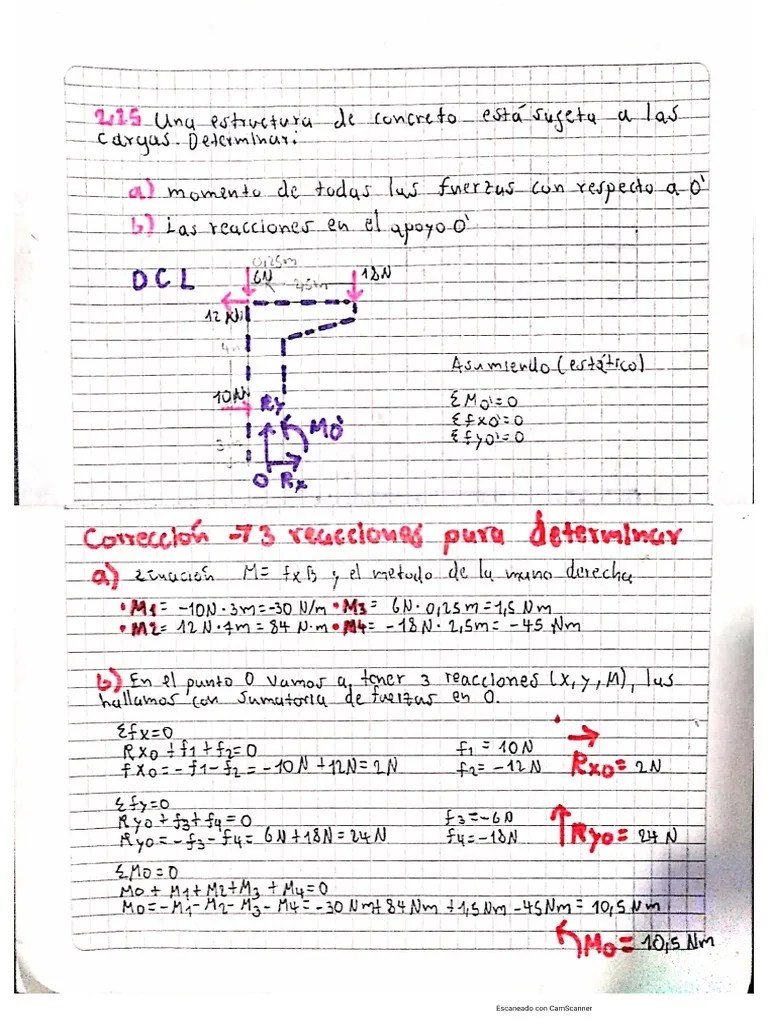 2.25 Una estructura de concreto está sujeta a las
cargas. Determinar:
a) momento de todas las fuerzas con respecto a O'
b) Las reacciones en el apoyo O'
DCL
0,25m
6N
18N
12 N
10N
Ry
Mo'
O Rx
Asumiendo (estático)
ΣMo'=0
Σfxo'=0
Σfyo'=0
Corrección → 3 reacciones para determinar
a) ecuación M= fxB y el metodo de la mano derecha
• M1= -10N·3m=-30 N/m • M3= 6N·0,25m=1,5 Nm
• M2= 12N·7m= 84 N·m • M4= -18N·2,5m= -45 Nm
b) En el punto O vamos a tener 3 reacciones (x, y, M), las
hallamos con sumatoria de fuerzas en O.
Σfx=0
Rxo + f1 + f2=0
f1 = 10N
fxo= -f1-f2= -10N +12N= 2N
f2= -12N
→
Rxo= 2N
Σfy=0
Ryo + f3 + f4=0
f3=-6N
Ryo= -f3-f4= 6N+18N= 24N
f4=-18N
↑Ryo= 24 N
ΣMo=0
Mo + M1 + M2 + M3 + M4=0
Mo=-M1-M2-M3-M4= -30 Nm+ 84Nm +1,5Nm -45Nm= 10,5 Nm
Mo= 10,5 Nm
Escaneado con CamScanner